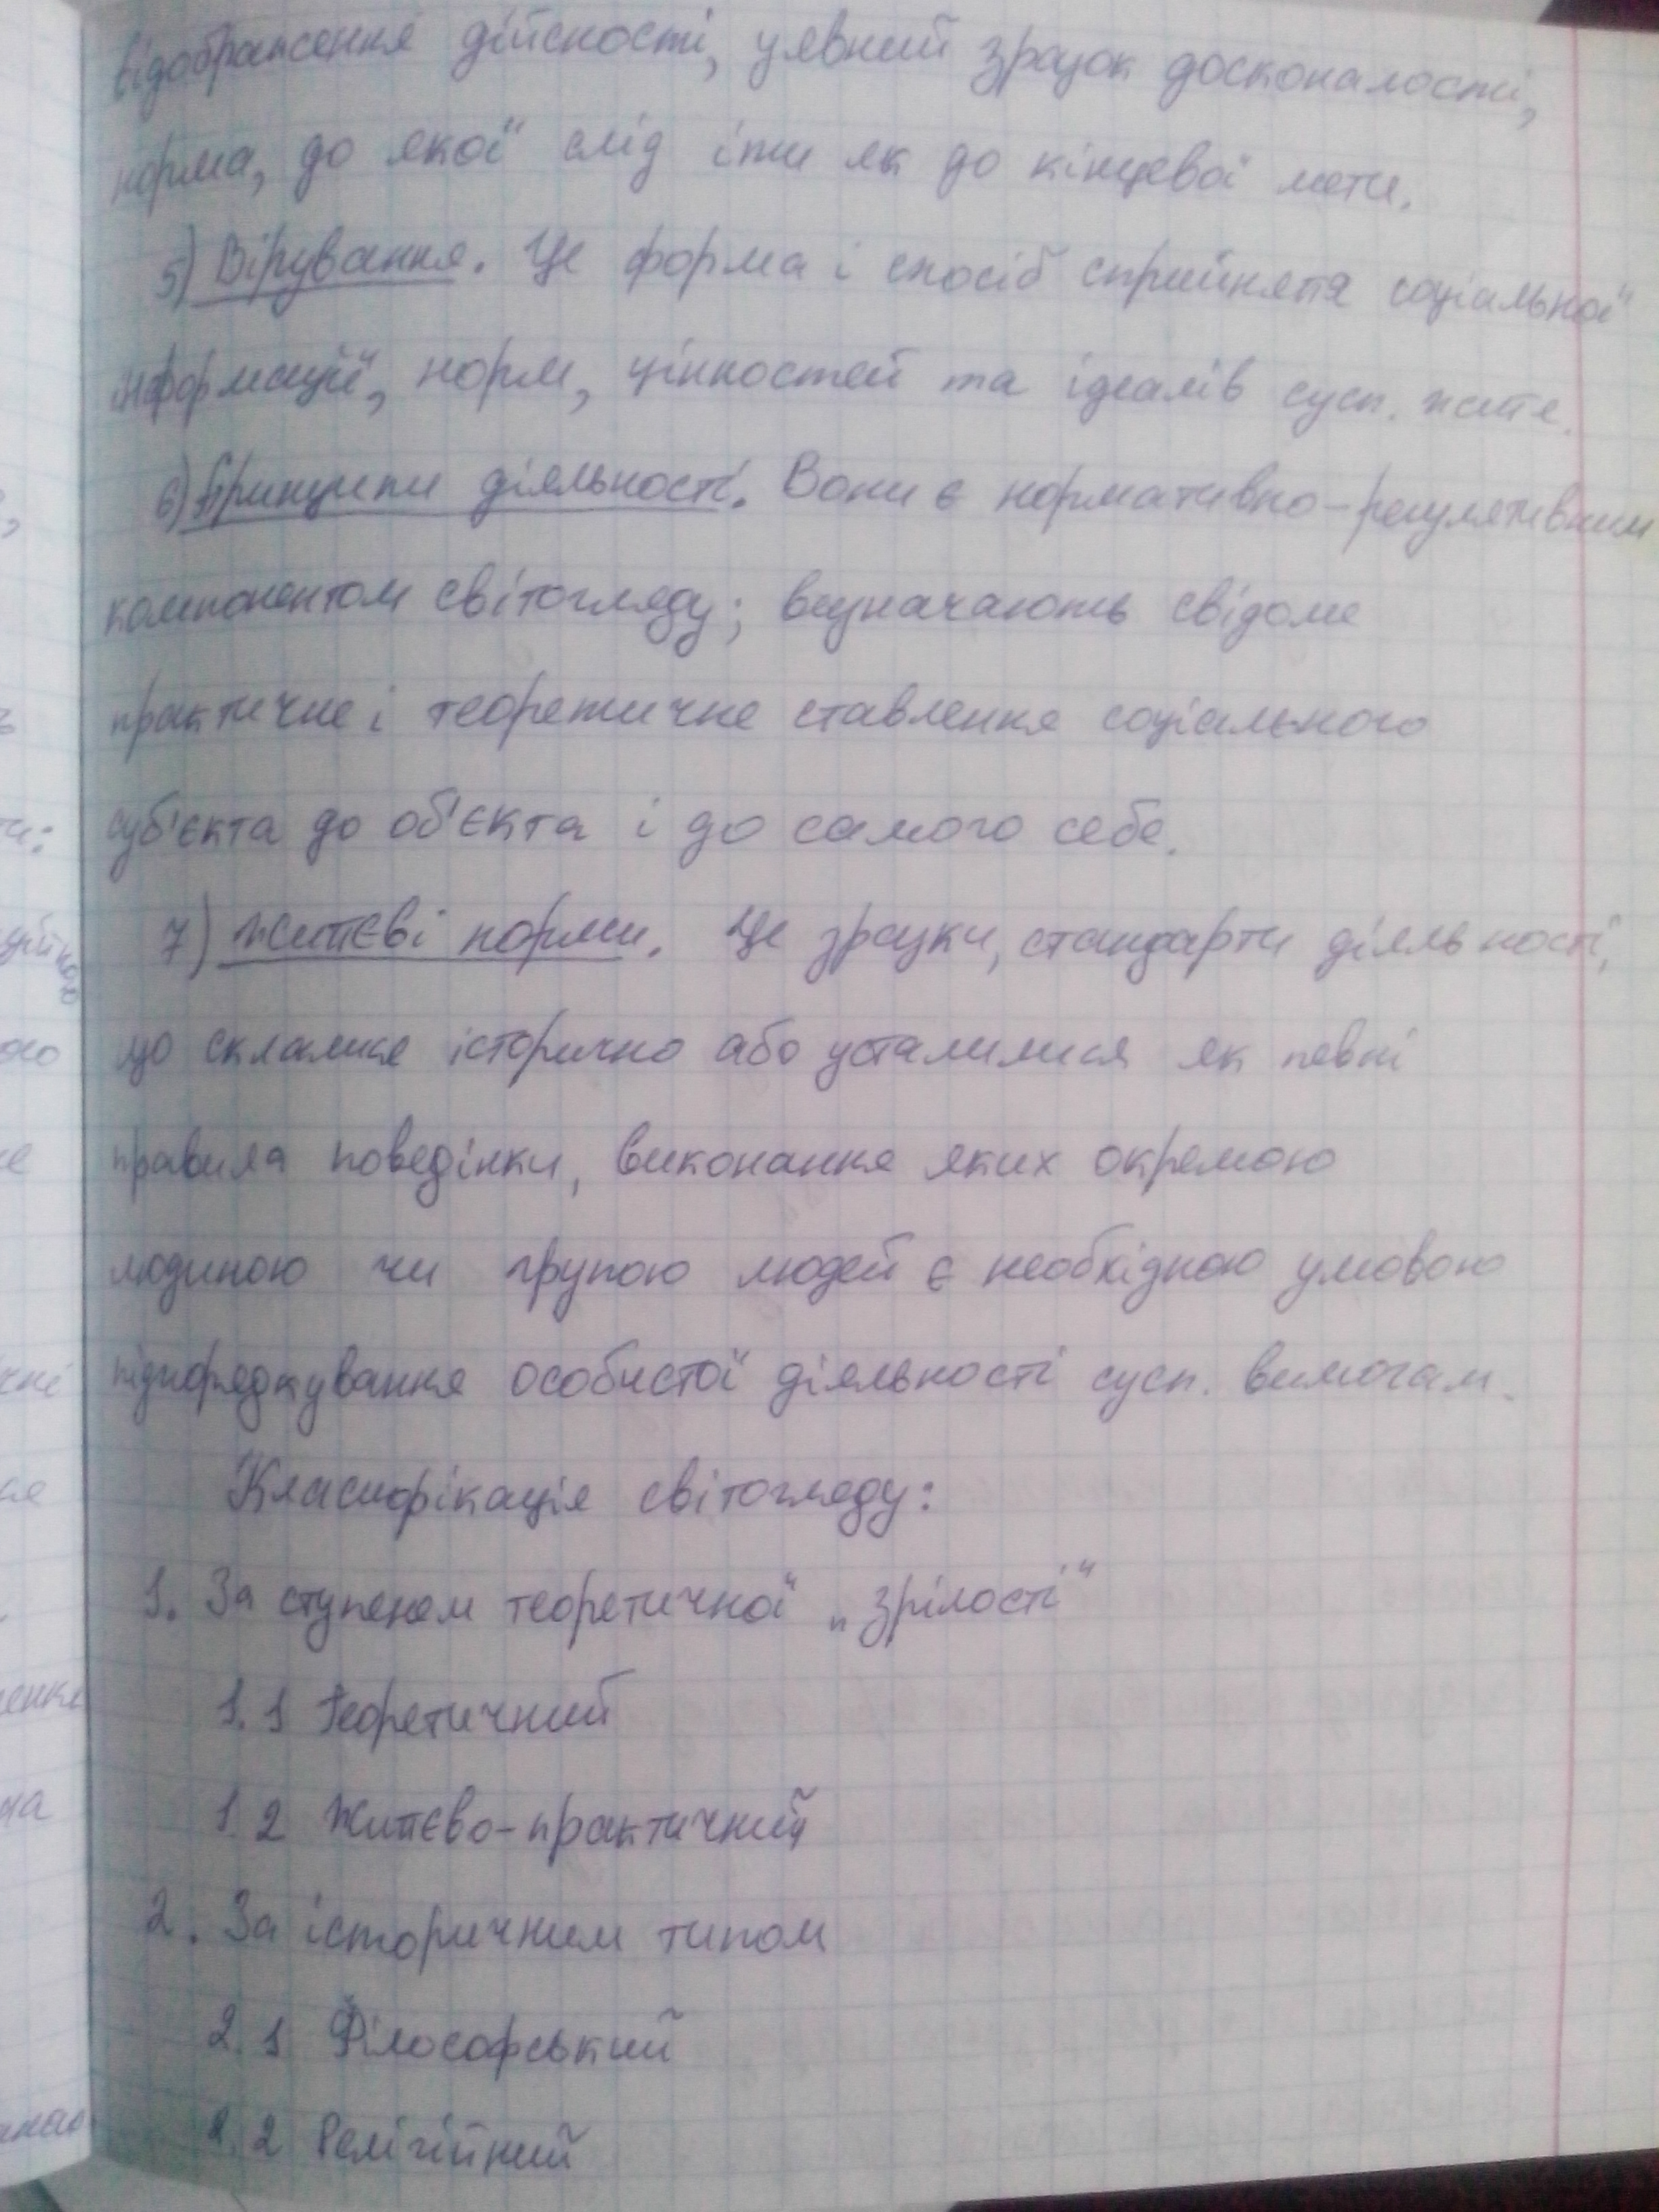 відображення дійсності, уявний зразок досконалості,
норма, до якої слід іти як до кінцевої мети.
5) Вірування. Це форма і спосіб сприйнятя соціальної
інформації, норм, цінностей та ідеалів сусп. життя.
6) Принципи діяльності. Вони є нормативно-регулятивним
компонентом світогляду; визначають свідоме
практичне і теоретичне ставлення соціального
суб'єкта до об'єкта і до самого себе.
7) Життєві норми. Це зразки, стандарти діяльності,
що склалися історично або усталилися як певні
правила поведінки, виконання яких окремою
людиною чи групою людей є необхідною умовою
підпорядкування особистої діяльності сусп. вимогам.
Класифікація світогляду:
1. За ступенем теоретичної „зрілості“
1.1 Теоретичний
1.2 Життєво-практичний
2. За історичним типом
2.1 Філософський
2.2 Релігійний